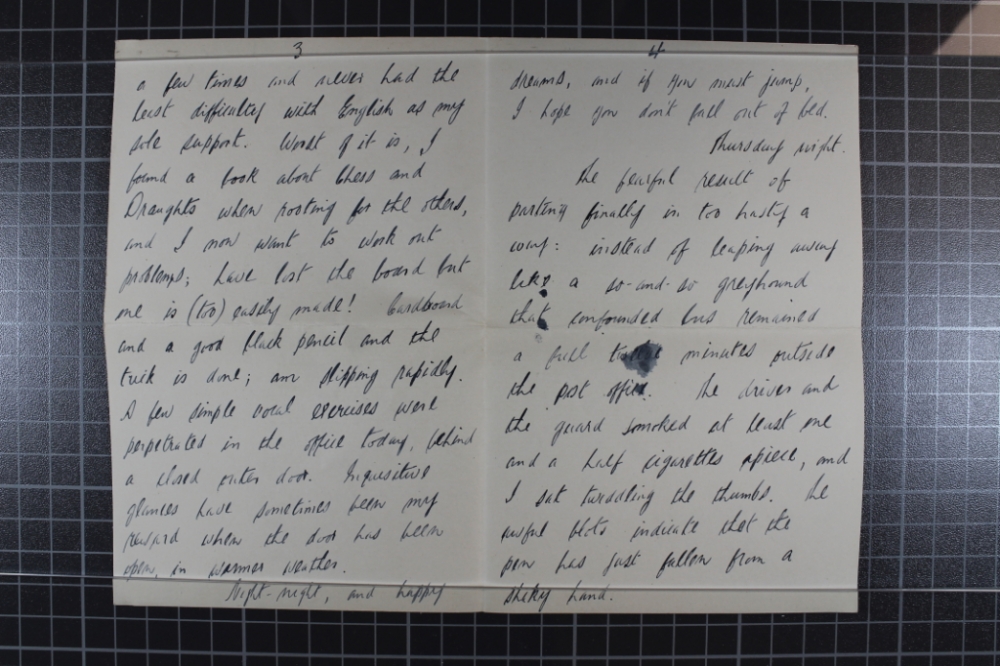 3
a few times and never had the
least difficulty with English as my
sole support. Worst of it is, I
found a book about Chess and
Draughts when rooting for the others,
and I now want to work out
problems; have lost the board but
one is (too) easily made! Cardboard
and a good black pencil and the
trick is done; am slipping rapidly.
A few simple vocal exercises were
perpetrated in the office today, behind
a closed outer door. Inquisitive
glances have sometimes been my
reward when the door has been
open, in warmer weather.
Night-night, and happy
4
dreams, and if you must jump,
I hope you don't fall out of bed.
Thursday night.
The fearful result of
parting finally in too hasty a
way: instead of leaping away
like a so-and-so greyhound
that confounded bus remained
a full twelve minutes outside
the post office. The driver and
the guard smoked at least one
and a half cigarettes apiece, and
I sat twiddling the thumbs. The
awful blots indicate that the
pen has just fallen from a
shaky hand.